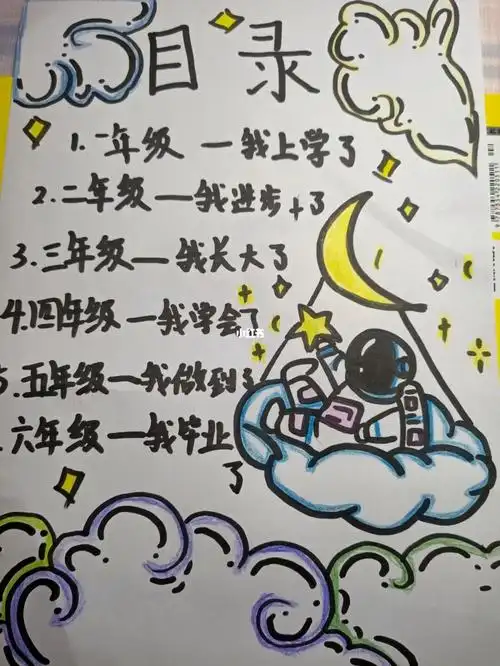 目录
1.一年级 一我上学了
2.二年级一我进步了
3.三年级一我长大了
4.四年级一我学会了
小红书
5.五年级一我做到了
六年级一我毕业
了